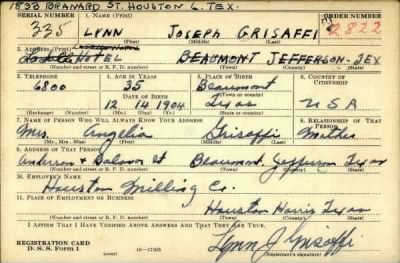 1838 BRANARD ST. HOUSTON 6, TEX.
SERIAL NUMBER
1. NAME (Print)
ORDER NUMBER
335
LYNN JOSEPH GRISAFFI
2822
(First) (Middle) (Last)
2. ADDRESS (Print)
HOTEL BEAUMONT JEFFERSON TEX
(Number and street or R. F. D. number) (Town) (County) (State)
3. TELEPHONE
4. AGE IN YEARS
5. PLACE OF BIRTH
6. COUNTRY OF CITIZENSHIP
6800
35
Beaumont
DATE OF BIRTH
(Town or county)
12 14 1904
Texas
USA
(Exchange) (Number)
(Mo.) (Day) (Yr.)
(State or country)
7. NAME OF PERSON WHO WILL ALWAYS KNOW YOUR ADDRESS
8. RELATIONSHIP OF THAT PERSON
Mrs. Angelia Grisaffi Mother
(Mr., Mrs., Miss) (First) (Middle) (Last)
9. ADDRESS OF THAT PERSON
Anderson & St Beaumont, Jefferson Texas
(Number and street or R. F. D. number) (Town) (County) (State)
10. EMPLOYER'S NAME
Houston Milling Co.
11. PLACE OF EMPLOYMENT OR BUSINESS
Houston Harris Texas
(Number and street or R. F. D. number) (Town) (County) (State)
I AFFIRM THAT I HAVE VERIFIED ABOVE ANSWERS AND THAT THEY ARE TRUE.
REGISTRATION CARD
D. S. S. Form 1
(over)
16—17105
Lynn J Grisaffi
(Registrant's signature)